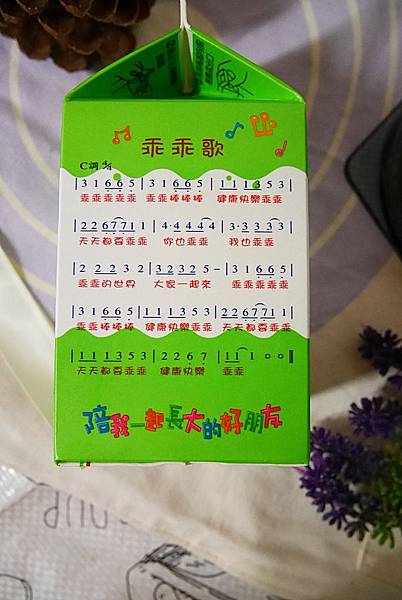 乖乖歌
C調 4/4
| 3 1 6 6 5 | 3 1 6 6 5 | 1 1 1 3 5 3 |
乖乖乖乖乖 乖乖棒棒棒 健康快樂乖乖
2 2 6 7 7 1 1 | 4· 4 4 4 4 | 3· 3 3 3 3 |
天天都要乖乖 你也乖乖 我也乖乖
2 2 2 3 2 | 3 2 3 2 5 – | 3 1 6 6 5 |
乖乖的世界 大家一起來 乖乖乖乖乖
3 1 6 6 5 | 1 1 1 3 5 3 | 2 2 6 7 7 1 |
乖乖棒棒棒 健康快樂乖乖 天天都要乖乖
| 1 1 1 3 5 3 | 2 2 6 7 | 1 1 1 o o ‖
天天都要乖乖 健康快樂 乖乖
陪我一起長大的好朋友